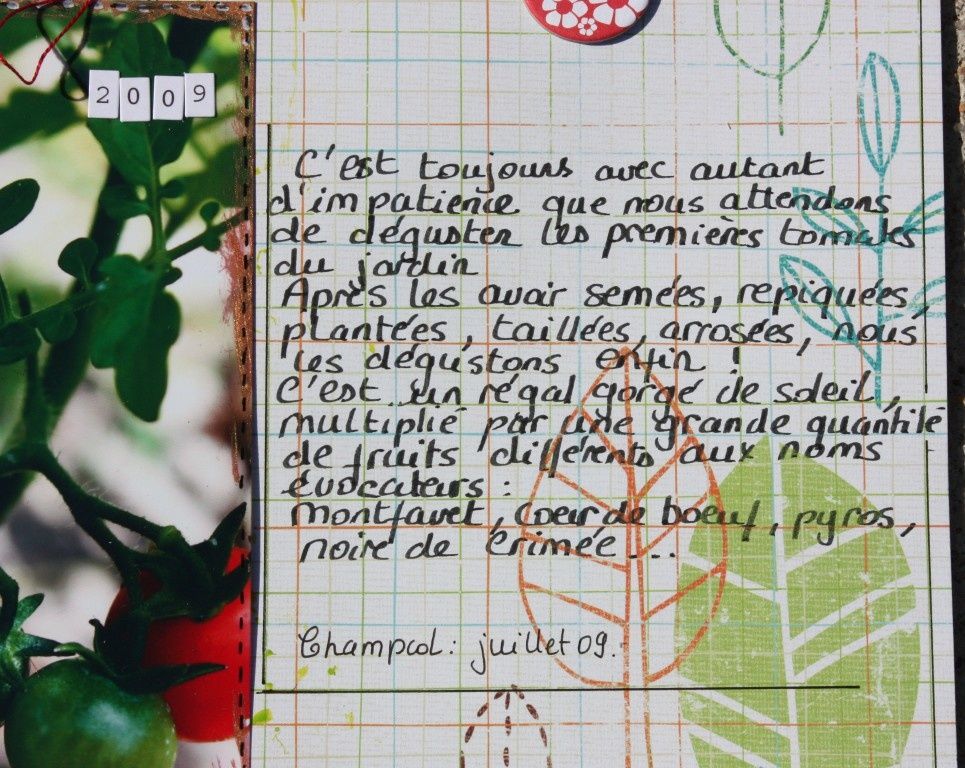 2009
C'est toujours avec autant
d'impatience que nous attendons
de déguster les premières tomates
du jardin
Après les avoir semées, repiquées,
plantées, taillées, arrosées, nous
les dégustons enfin !
C'est un régal gorgé de soleil,
multiplié par une grande quantité
de fruits différents aux noms
évocateurs :
montfavet, coeur de boeuf, pyros,
noire de crimée ...
Champcol : juillet 09.